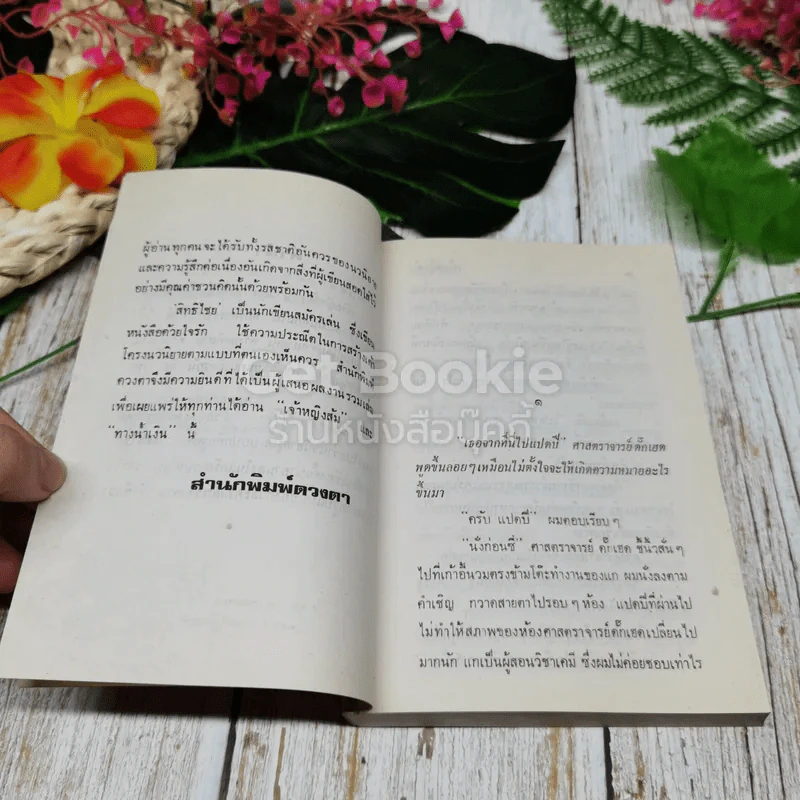 ผู้อ่านทุกคนจะได้รับทั้งรสชาติอันควรของนวนิยาย
และความรู้สึกต่อเนื่องอันเกิดจากสิ่งที่ผู้เขียนสอดใส่ไว้
อย่างมีคุณค่าชวนคิดนั้นด้วยพร้อมกัน
"สิทธิไชย" เป็นนักเขียนสมัครเล่น ซึ่งเขียน
หนังสือด้วยใจรัก ใช้ความประณีตในการสร้าง
โครงนวนิยายตามแบบที่ตนเองเห็นควร สำนักพิมพ์
ดวงตาจึงมีความยินดีที่ได้เป็นผู้เสนอผลงานรวมเล่ม
เพื่อเผยแพร่ให้ทุกท่านได้อ่าน "เจ้าหญิงส้ม" และ
"ทางน้ำเงิน" นี้
สำนักพิมพ์ดวงตา
Get Bookie
ร้านหนังสือบุ๊คกี้
๑
"เธอจากที่นี่ไปแปดปี" ศาสตราจารย์ ดั๊กเฮด
พูดขึ้นลอย ๆ เหมือนไม่ตั้งใจจะให้เกิดความหมายอะไร
ขึ้นมา
"ครับ แปดปี" ผมตอบเรียบ ๆ
"นั่งก่อนซี" ศาสตราจารย์ ดั๊กเฮด ชี้นิ้วสั่น ๆ
ไปที่เก้าอี้นวมตรงข้ามโต๊ะทำงานของแก ผมนั่งลงตาม
คำเชิญ กวาดสายตาไปรอบ ๆ ห้อง แปดปีที่ผ่านไป
ไม่ทำให้สภาพของห้องศาสตราจารย์ดั๊กเฮดเปลี่ยนไป
มากนัก แกเป็นผู้สอนวิชาเคมี ซึ่งผมไม่ค่อยชอบเท่าไร